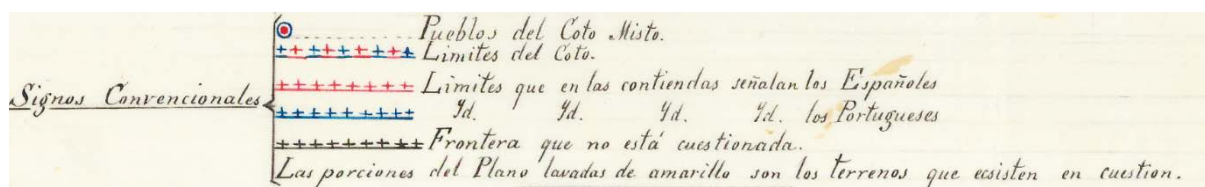 Pueblos del Coto Misto.
Limites del Coto.
Limites que en las contiendas señalan los Españoles
Signos Convencionales
Yd. Yd. Yd. Yd. los Portugueses
Frontera que no está cuestionada.
Las porciones del Plano lavadas de amarillo son los terrenos que ecsisten en cuestion.